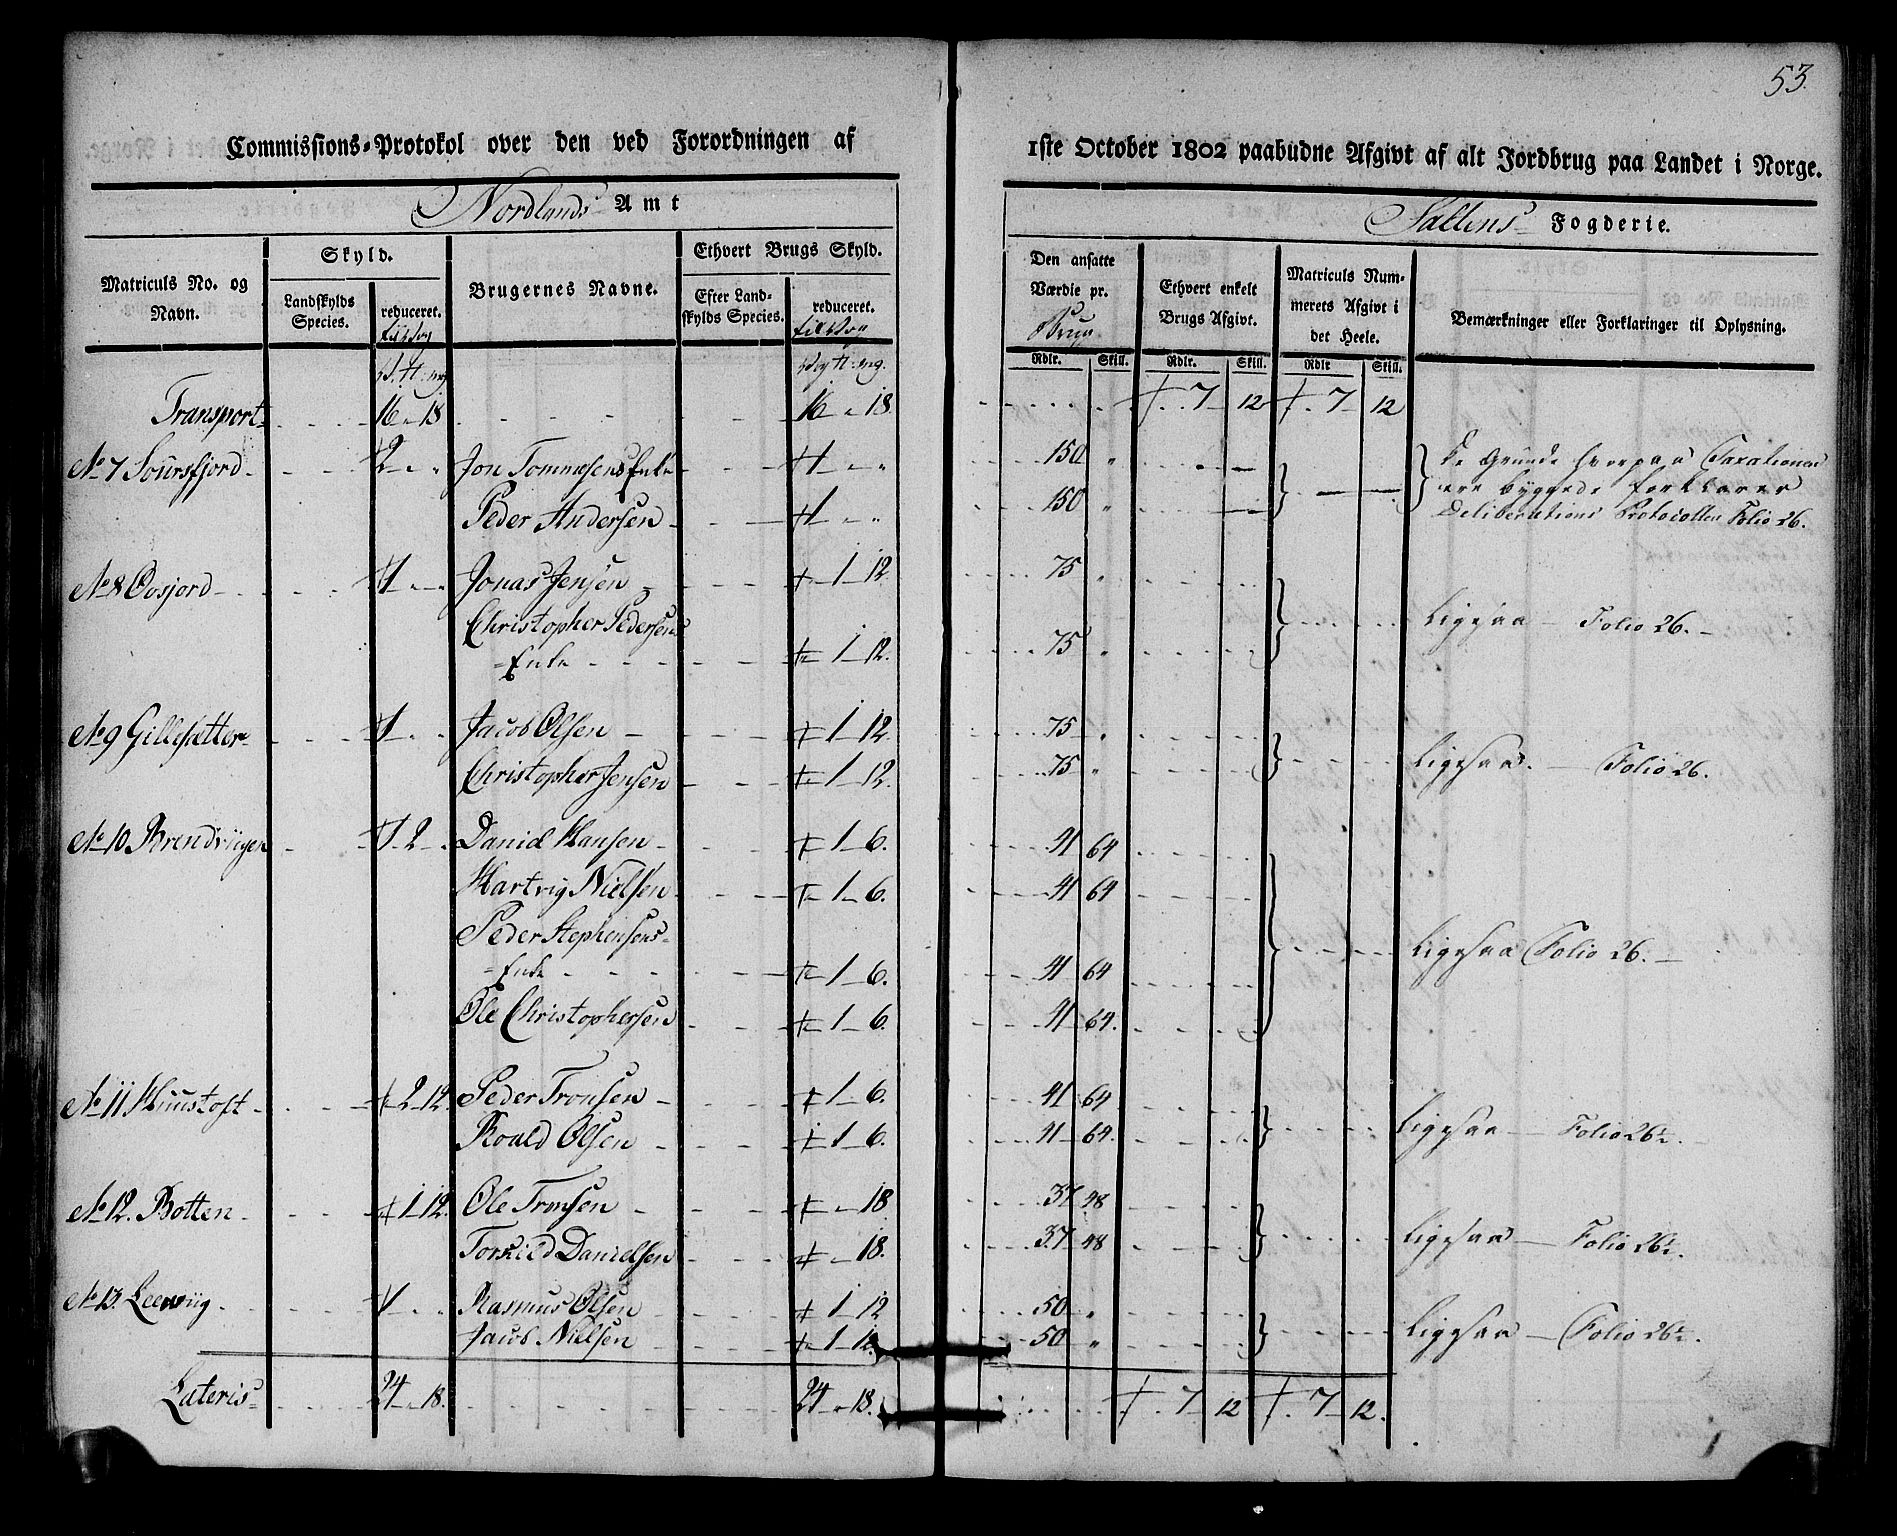 53.
Commissions-Protokol over den ved Forordningen af 1ste October 1802 paabudne Afgivt af alt Jordbrug paa Landet i Norge.
Nordlands Amt
Saltens Fogderie.
Matriculs No. og Navn.
Skyld.
Landskylds Species.
reduceret.
Brugernes Navne.
Ethvert Brugs Skyld.
Efter Landskylds Species.
reduceret.
Den ansatte Værdie pr. Brug
Rdlr. Skill.
Ethvert enkelt Brugs Afgivt.
Rdlr. Skill.
Matriculs Nummerets Afgivt i det Heele.
Rdlr Skill.
Bemærkninger eller Forklaringer til Oplysning.
Transport 16 " 18 16 " 18. 7 12 7 12
No 7 Soursfjord 2 " Jon Tommesens Enke 1 " " 150 "
De Grunde hvorpaa Taxationen
ere byggede forklarer
Deliberations Protocollen Folio 26.
Peder Andersen 1 " " 150 "
No 8 Oosjord 1 Jonas Jensen 1 12. 75 "
Christopher Pedersens
Enke 1 12. 75 " Ligesaa Folio 26.
No 9 Gillesetter 1 Jacob Olsen 1 12. 75 "
Christopher Jensen 1 12. 75 " Ligesaa. Folio 26.
No 10 Brendviigen 1 2 Daniel Hansen 1 6. 41 64
Hartvig Nielsen 1 6. 41 64
Peder Stephensens
Enke 1 6. 41 64 Ligesaa Folio 26.
Ole Christophersen 1 6. 41 64.
No 11 Huustoft 2 12. Peder Tronsen 1 6. 41 64
Roald Olsen 1 6. 41 64. Ligesaa Folio 26
No 12. Botten 1 12. Ole Tronsen 18 37 48
Torkild Danielsen 18. 37 48 Ligesaa Folio 26
No 13. Leerviig 1 Rasmus Olsen 1 12 50 "
Jacob Nielsen 1 12. 50 " Ligesaa Folio 26
Lateris 24 " 18. 24 " 18. 7 12 7 12.